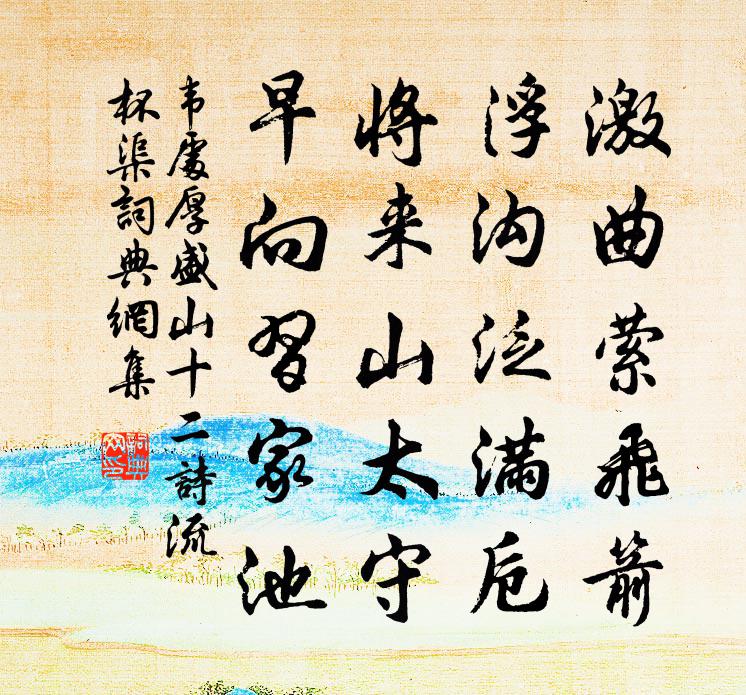 激曲萦飛箭
浮沟泛滿卮
将来山太守
早向習家池
韦處厚盛山十二詩流
杯渠詞典網集